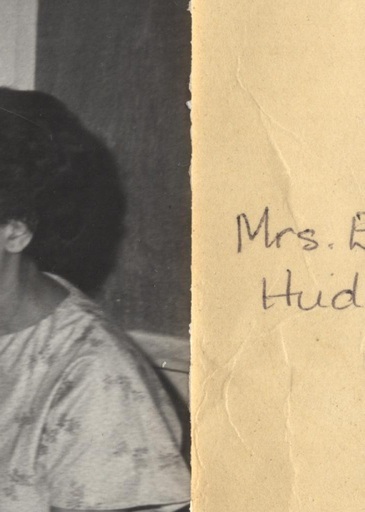 Mrs.
Hud